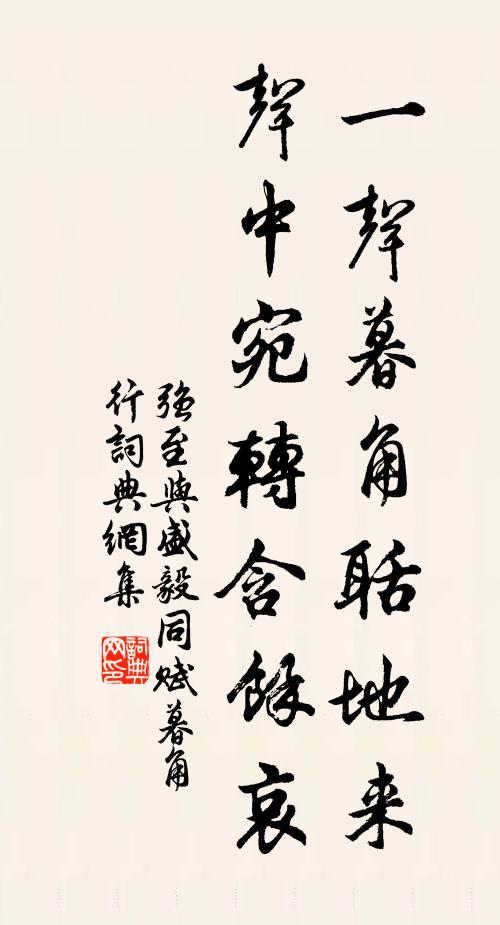 一聲暮角聒地来
聲中宛轉含餘哀
強至與盛毅同賦暮角
行詞典網集
詞典网印